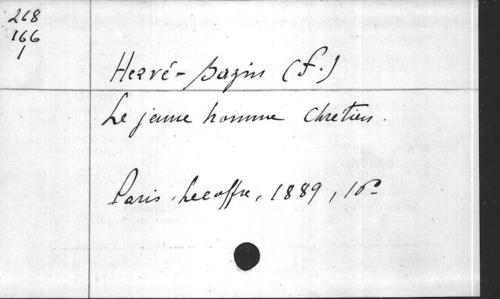 268
166
1
Hervé-Bazin (F.)
Le jeune homme chrétien.
Paris, Lecoffre, 1889, 16°